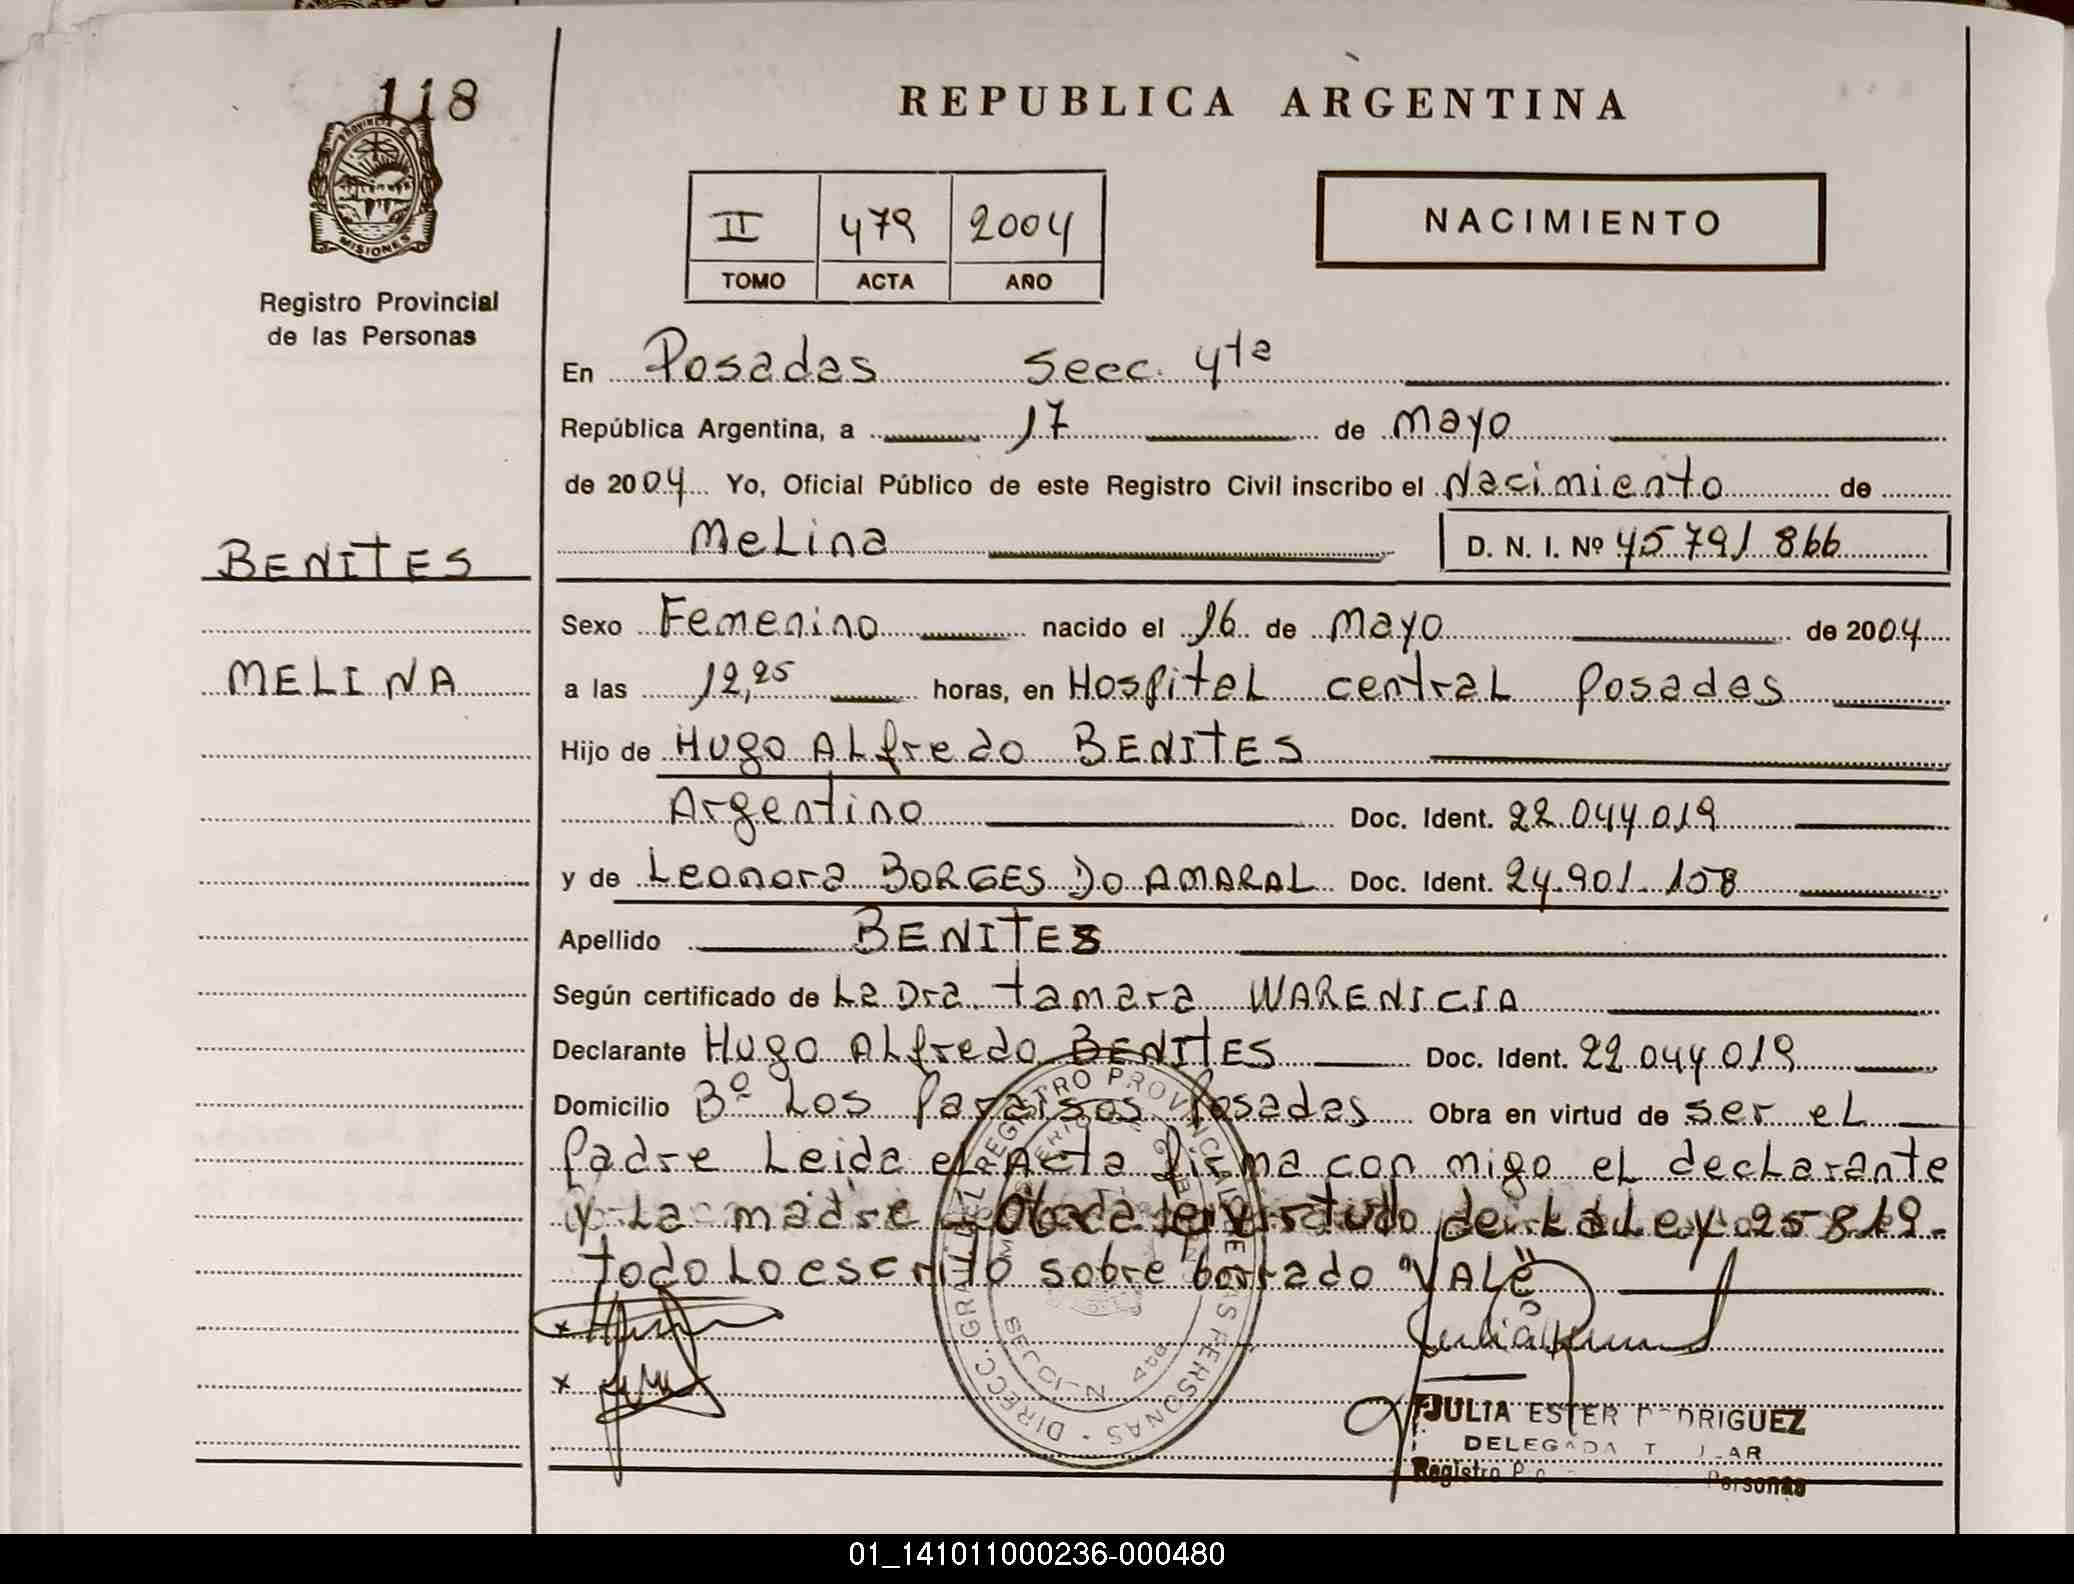 118
PROVINCIA DE
MISIONES
Registro Provincial
de las Personas
REPUBLICA ARGENTINA
II 479 2004
TOMO ACTA AÑO
NACIMIENTO
En Posadas Secc. 4ta
República Argentina, a 17 de mayo
de 2004 Yo, Oficial Público de este Registro Civil inscribo el Nacimiento de
MeLina D. N. I. Nº 45 791 866
BENITES
MELINA
Sexo Femenino nacido el 16 de mayo de 2004
a las 12,25 horas, en HospitaL centraL Posadas
Hijo de Hugo ALfredo BENITES
Argentino Doc. Ident. 22.044.019
y de Leonora BORGES DO AMARAL Doc. Ident. 24.901.158
Apellido BENITES
Según certificado de La Dra. tamara WARENICIA
Declarante Hugo ALfredo BENITES Doc. Ident. 22.044.019
Domicilio Bº Los Paraisos Posadas Obra en virtud de ser eL
Padre Leida el Acta firma con migo eL decLarante
y La madre Obra en virtud de La Ley 25819.
todo Lo escrito sobre borrado "VALE"
DIRECC. GRAL. DEL REGISTRO PROVINCIAL DE LAS PERSONAS
SECCION 4ta
JULIA ESTER RODRIGUEZ
DELEGADA TITULAR
Registro Personas
01_141011000236-000480